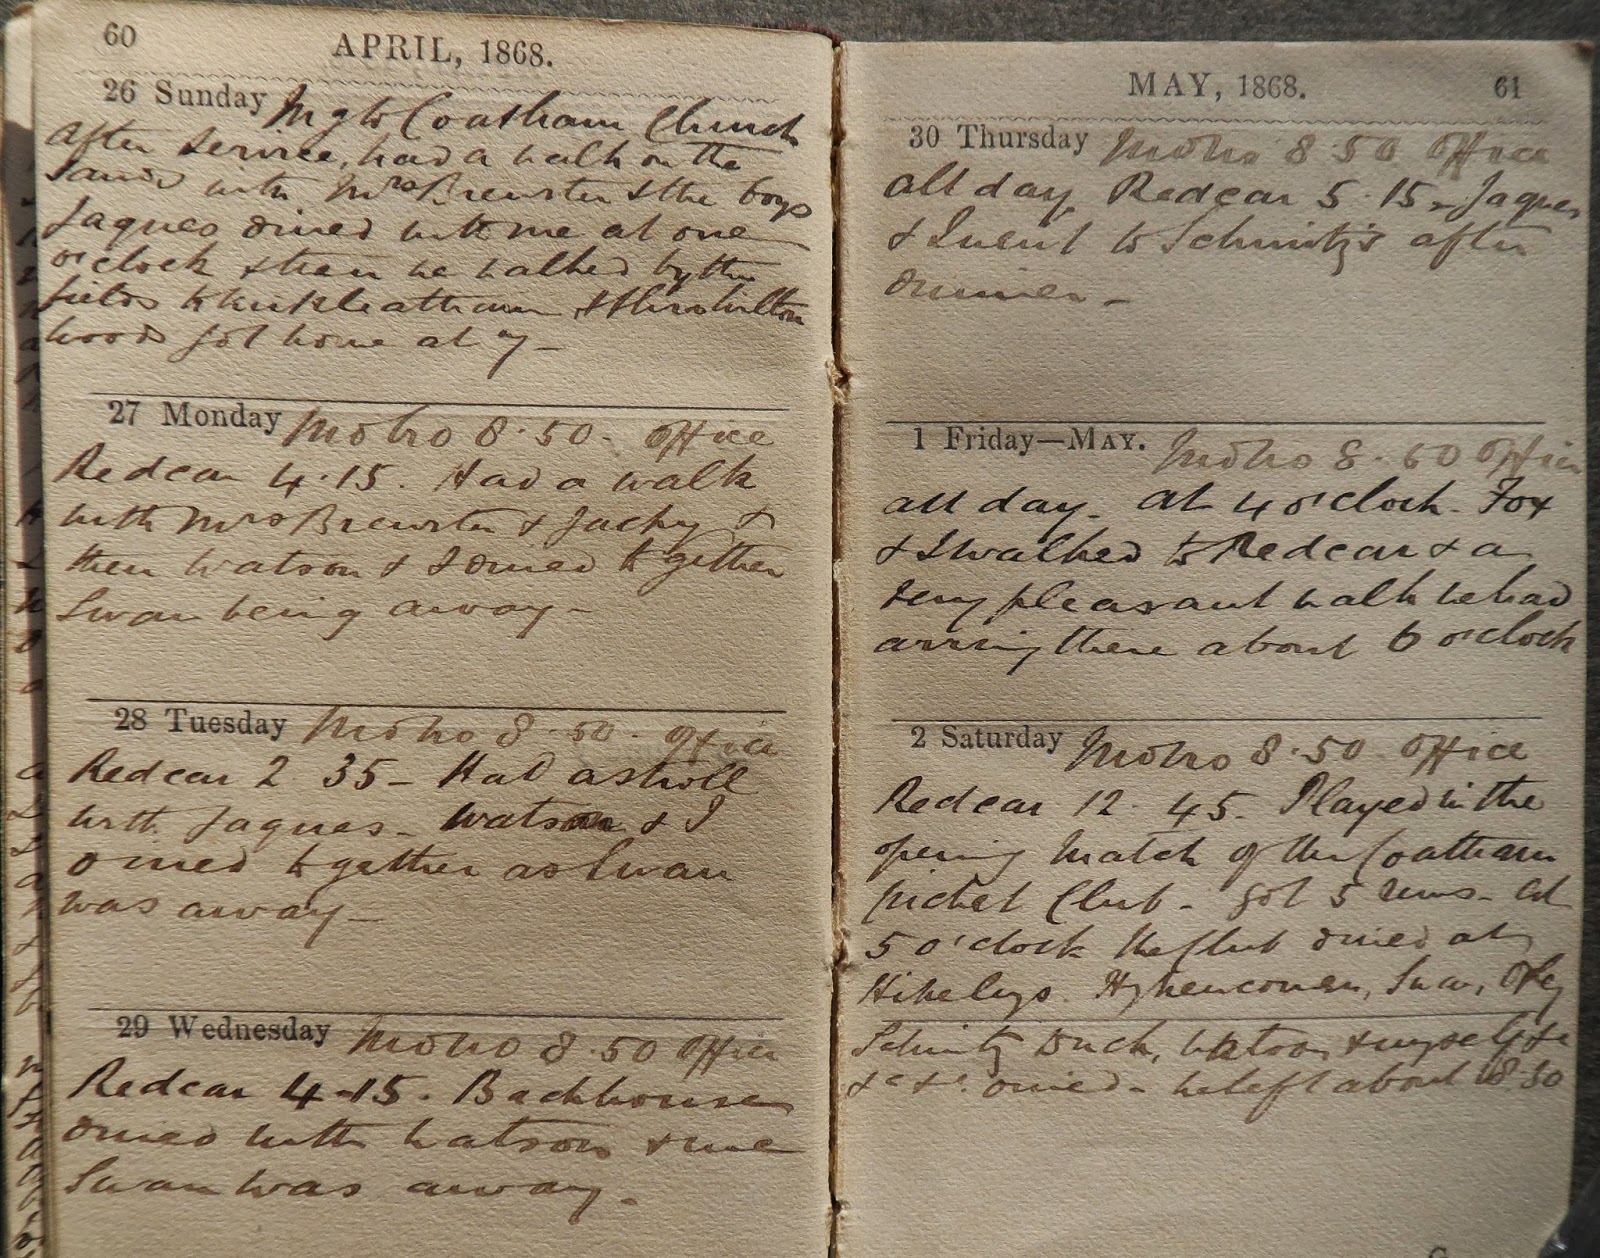 60
APRIL, 1868.
26 Sunday Mg to Coatham Church
After service, had a walk on the
Sands with Mrs Brewster & the boys
Jaques dined with me at one
o'clock & then we walked by the
fields to Kirkleatham & the Wilton
woods got home at 7 –
27 Monday Mbro 8·50 - Office
Redcar 4·15. Had a walk
with Mrs Brewster & Jacky &
then Watson & I dined together
Swan being away –
28 Tuesday Mbro 8·50 - Office
Redcar 2 35 – Had a stroll
with Jaques – Watson & I
dined together as Swan
was away –
29 Wednesday Mbro 8·50 Office
Redcar 4-15. Backhouse
dined with Watson & me
Swan was away –
MAY, 1868.
61
30 Thursday Mbro 8·50 Office
all day. Redcar 5·15 – Jaques
& I went to Schmitz's after
dinner –
1 Friday—MAY. Mbro 8·50 Office
all day – at 4 o'clock – Fox
& I walked to Redcar & a
very pleasant walk we had
arriving there about 6 o'clock
2 Saturday Mbro 8·50 Office
Redcar 12·45. Played in the
opening match of the Coatham
Cricket Club – got 5 runs – At
5 o'clock the Club dined at
Swan,
Schmitz Watson & myself &c
&c &c dined – we left about 10·30